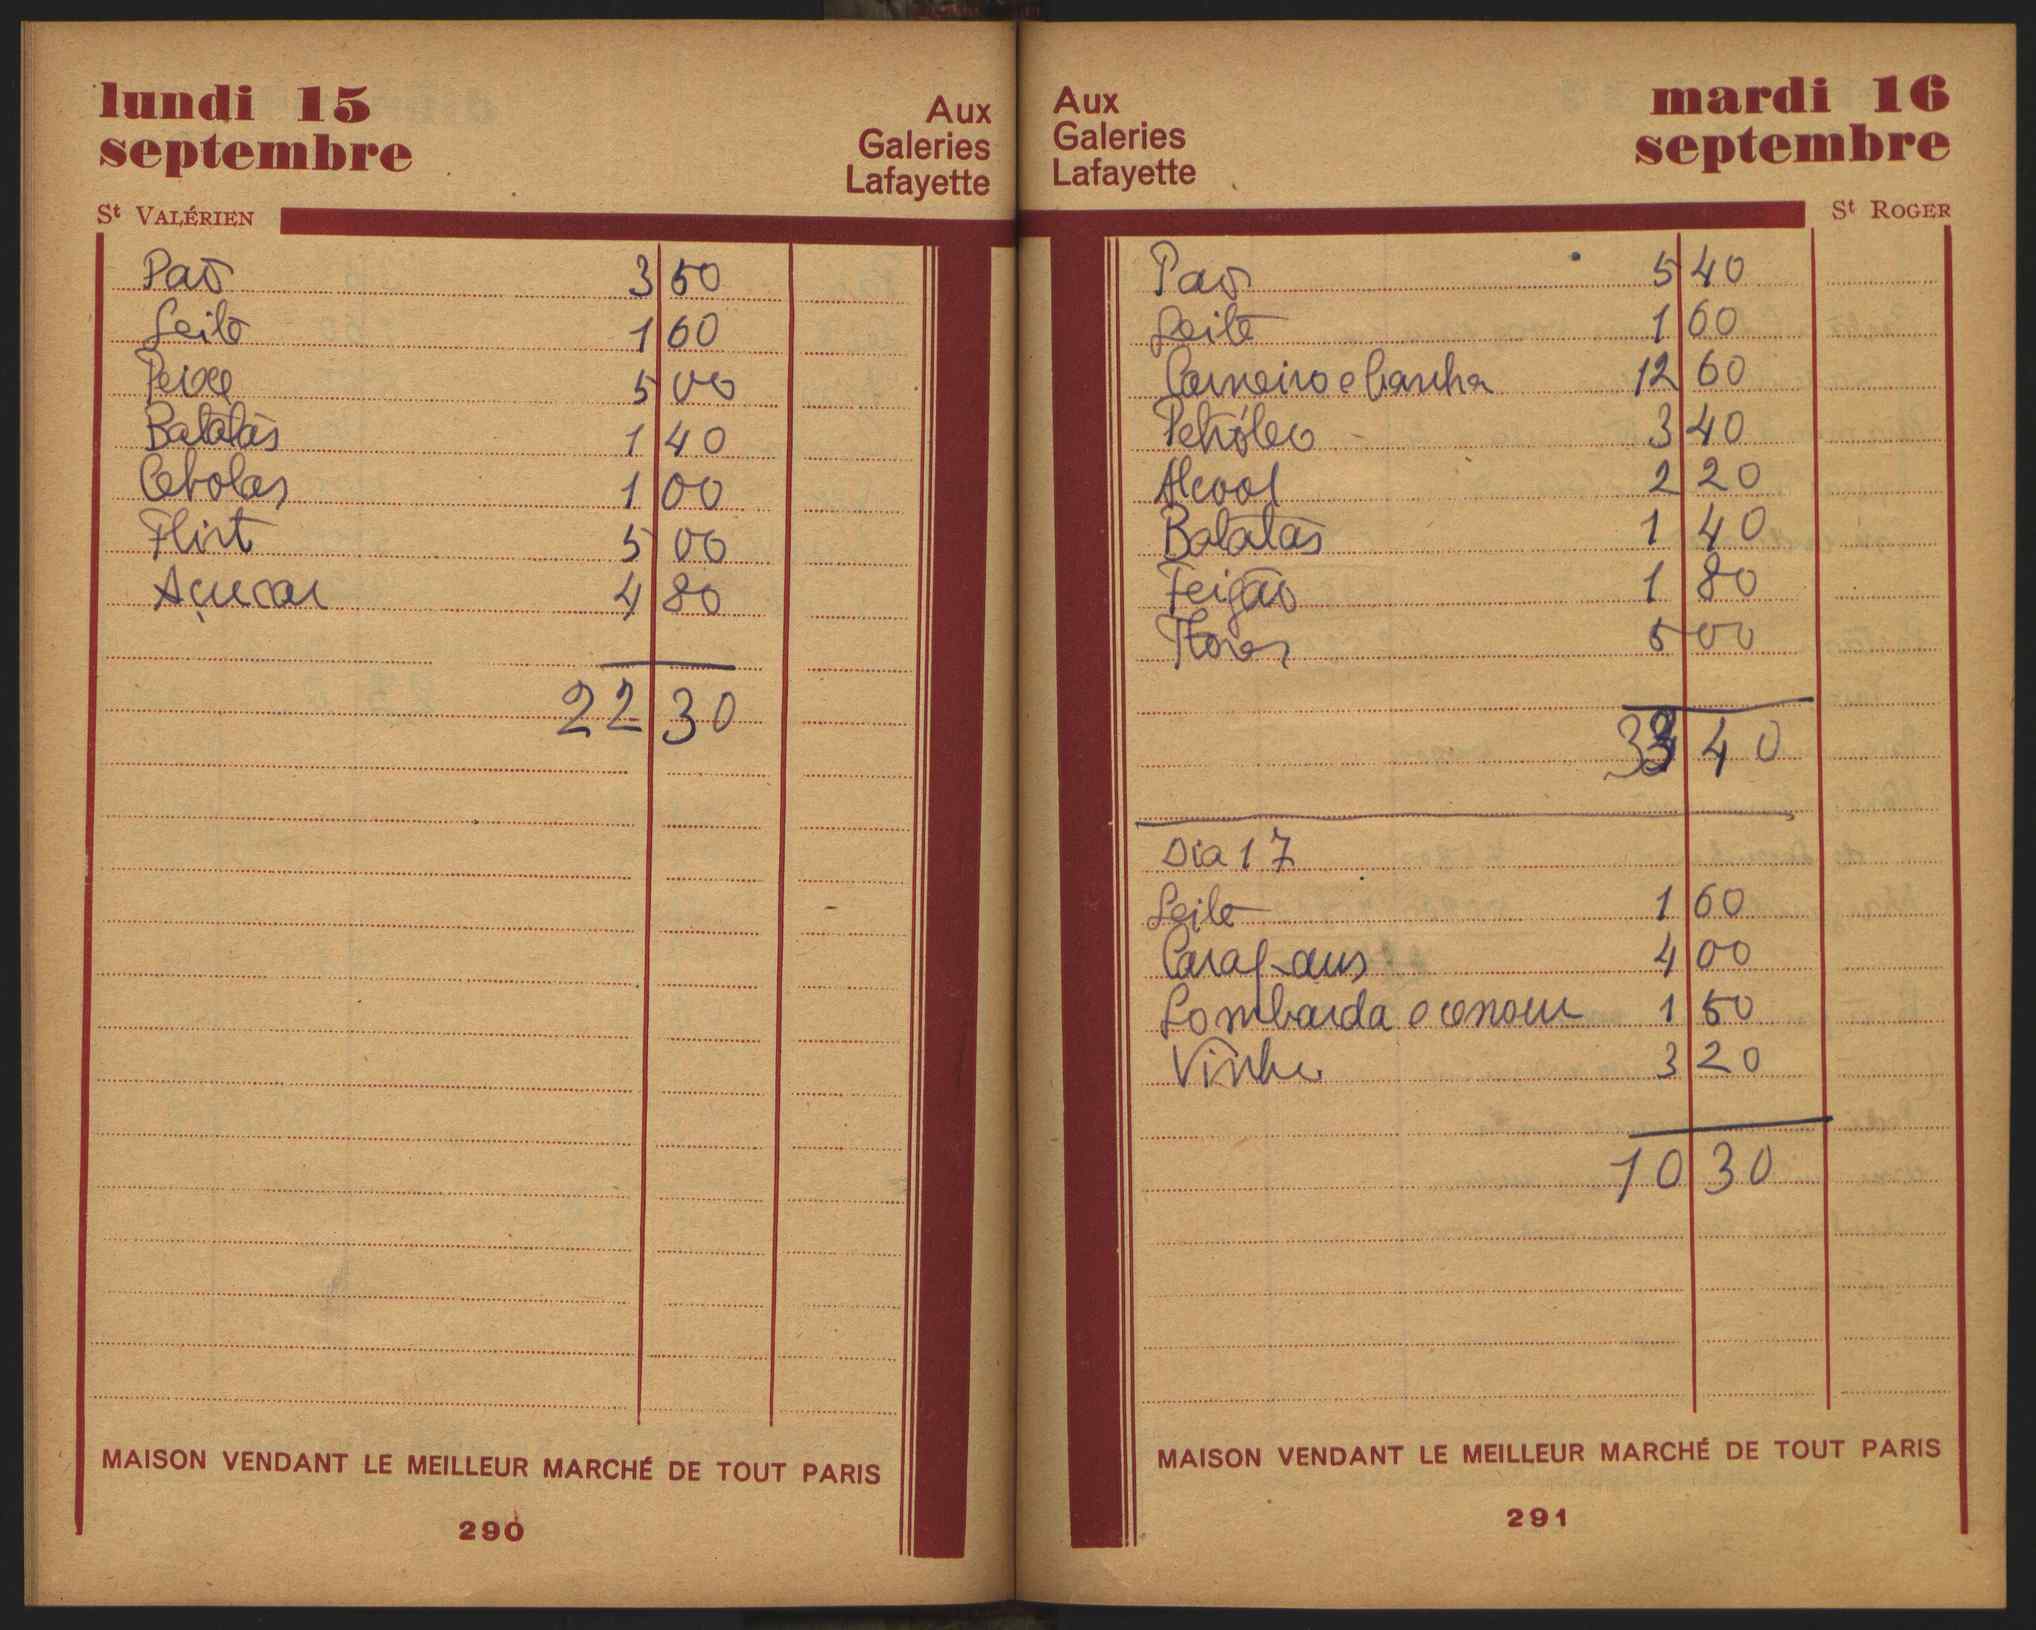 lundi 15
septembre
Aux
Galeries
Lafayette
St VALÉRIEN
Pão 3 50
Leite 1 60
Peixe 5 00
Batatas 1 40
Cebolas 1 00
Flirt 5 00
Açucar 4 80
22 30
MAISON VENDANT LE MEILLEUR MARCHÉ DE TOUT PARIS
290
Aux
Galeries
Lafayette
mardi 16
septembre
St ROGER
Pão 5 40
Leite 1 60
Carneiro e banha 12 60
Petróleo 3 40
Alcool 2 20
Batatas 1 40
Feigão 1 80
Flores 5 00
33 40
Dia 17
Leite 1 60
Carapaus 4 00
Lombarda e cenour 1 50
Vinho 3 20
10 30
MAISON VENDANT LE MEILLEUR MARCHÉ DE TOUT PARIS
291